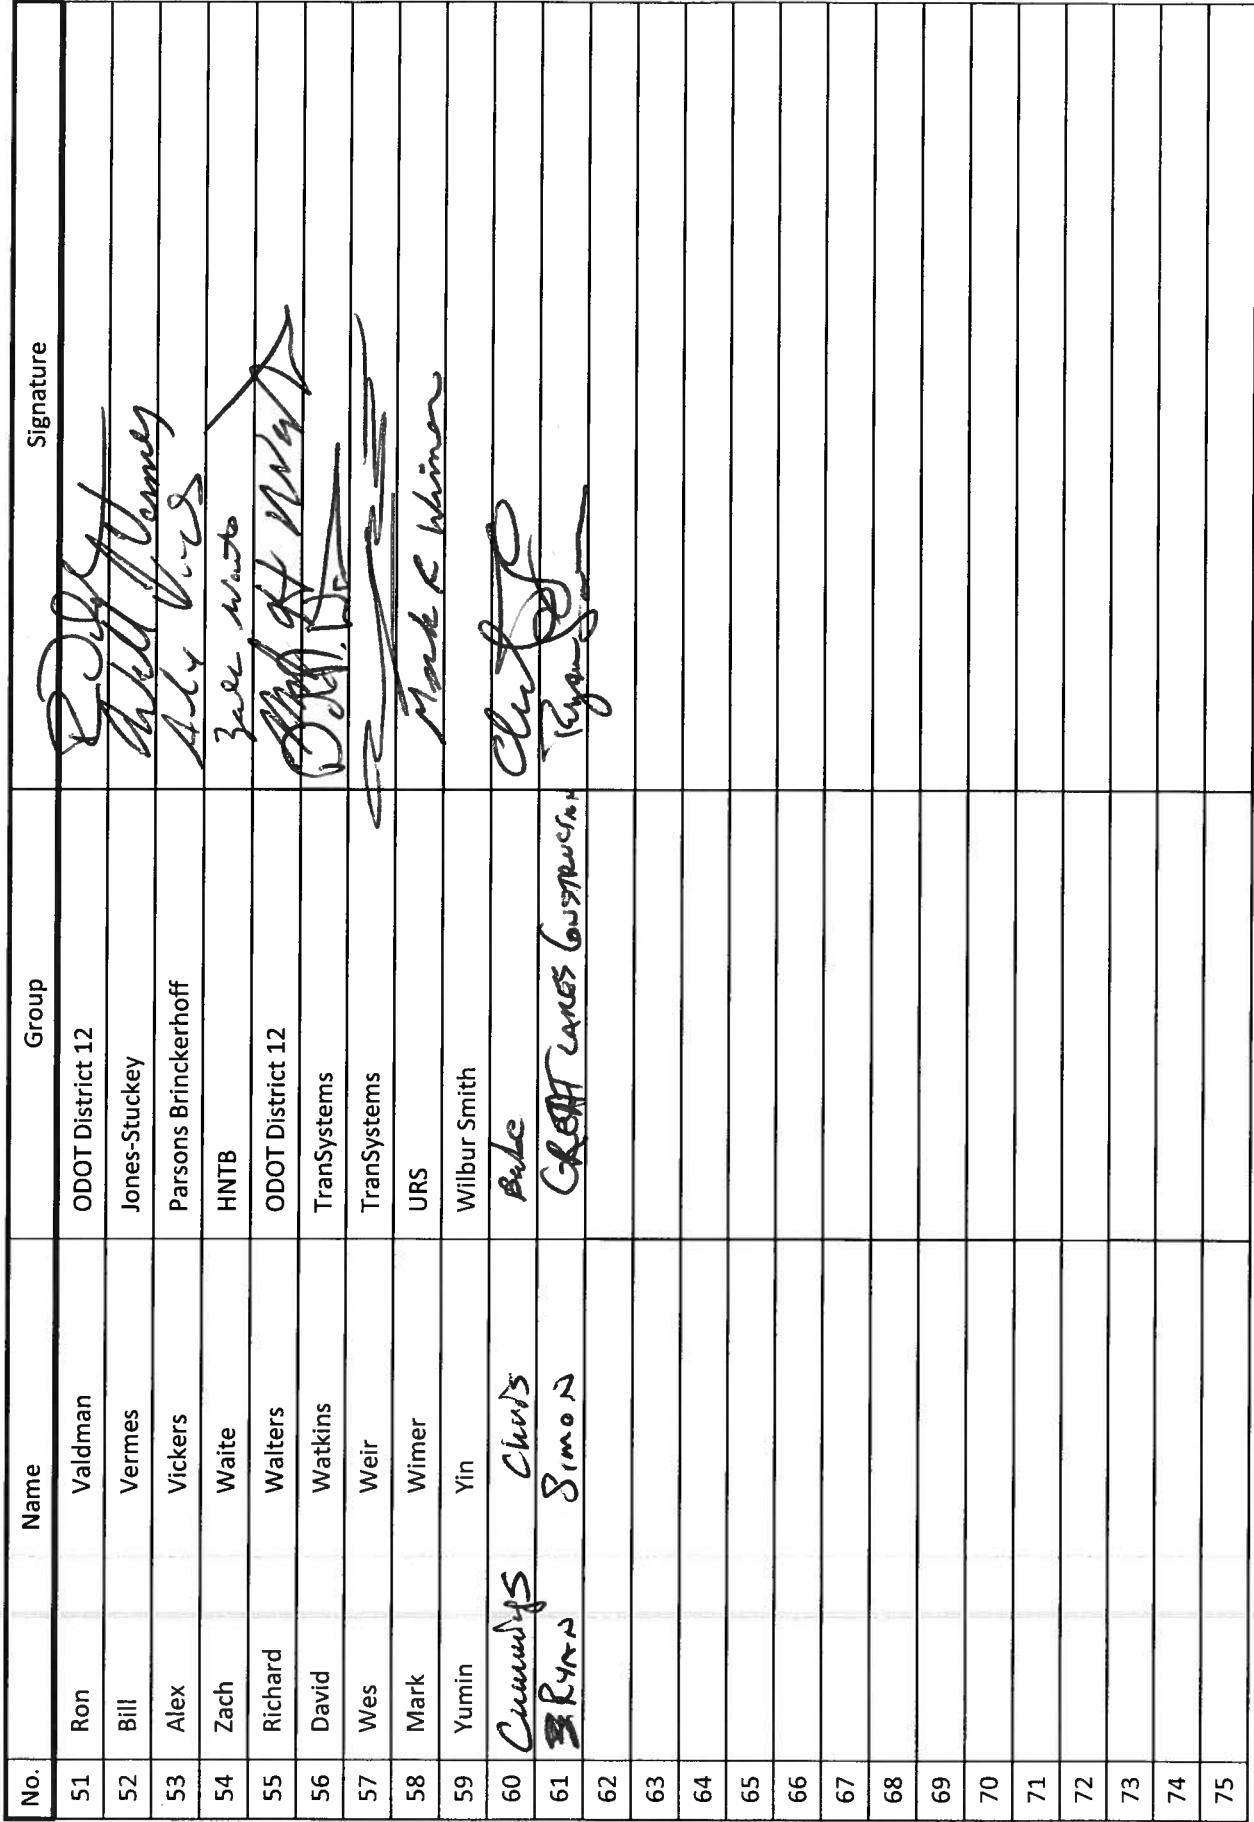 No. Name Group Signature
51 Ron Valdman ODOT District 12
52 Bill Vermes Jones-Stuckey
53 Alex Vickers Parsons Brinckerhoff Alex
54 Zach Waite HNTB
55 Richard Walters ODOT District 12
56 David Watkins TranSystems
57 Wes Weir TranSystems
58 Mark Wimer URS Mark R Wimer
59 Yumin Yin Wilbur Smith
60 Cummings Chris
61 RYAN SIMON GREAT LAKES CONSTRUCTION Ryan
62
63
64
65
66
67
68
69
70
71
72
73
74
75